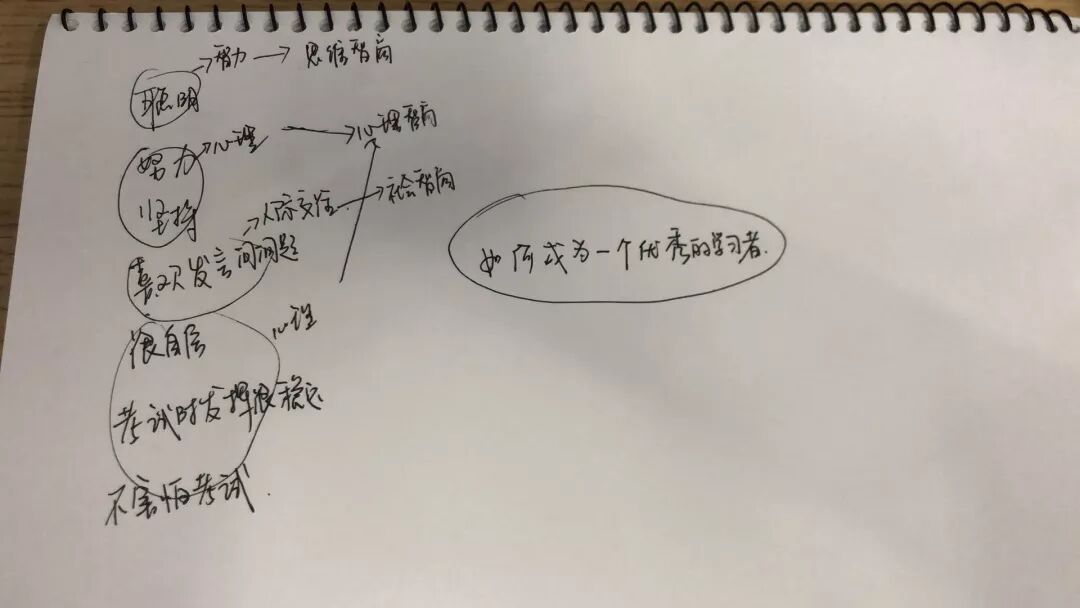 聪明 →智力 → 思维智商
努力 →心理 → 心理智商
坚持
喜欢发言问问题 →人际交往 → 社会智商
很自信 心理
考试时发挥很稳定
不害怕考试.
如何成为一个优秀的学习者.